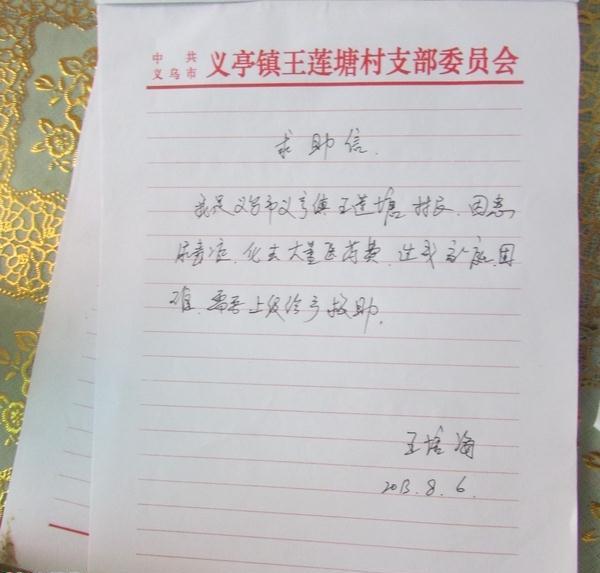 中共义乌市 义亭镇王莲塘村支部委员会
求助信.
我是义乌市义亭镇王莲塘村民.因患
尿毒症.化去大量医药费.造成家庭困
难.需要上级给予救助.
王培
2013.8.6.